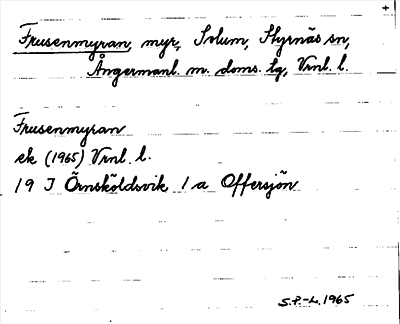 +
Frusenmyran, myr, Solum, Styrnäs sn,
Ångermanl. m. doms. lg, Vrnl. l.
Frusenmyran
ek (1965) Vrnl. l.
19 J Örnsköldsvik 1 a Offersjön
S.P.-L. 1965